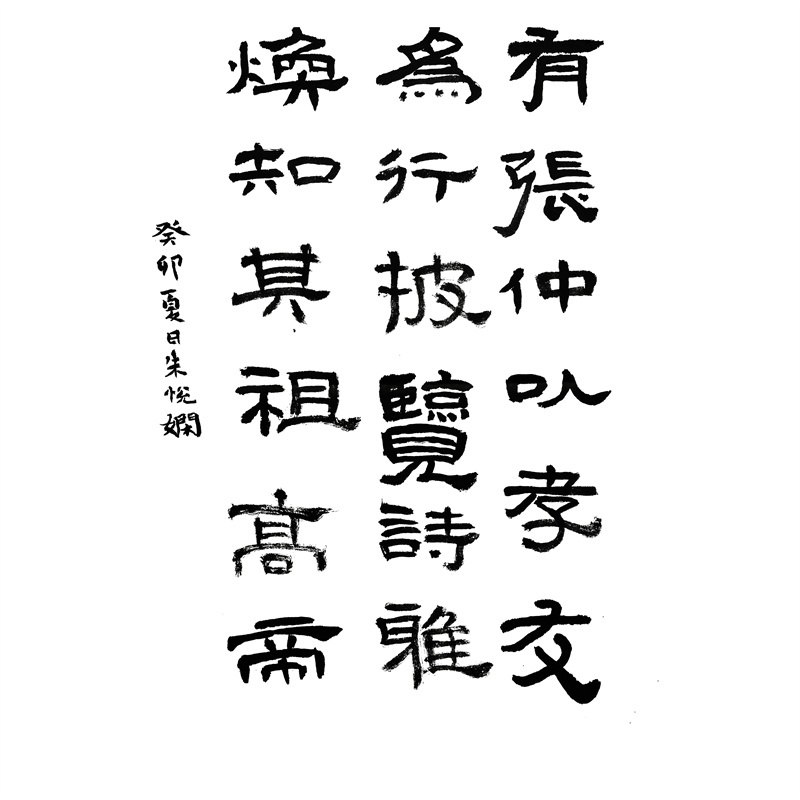 有張仲以孝友
為行披覽詩雅
煥知其祖高帝
癸卯夏日朱悅嫻